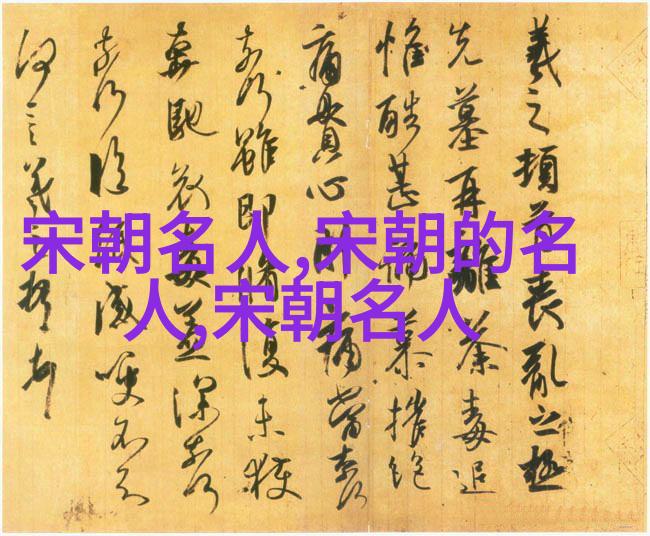 宋朝名人,宋朝的名
人,宋朝名人
羲之頓首喪亂之極
先墓再離荼毒追
惟酷甚號慕摧絕
痛貫心肝痛當奈何
奈何雖即脩復未獲
奔馳哀毒益深奈何
奈何臨紙感哽不知
何言羲之頓首